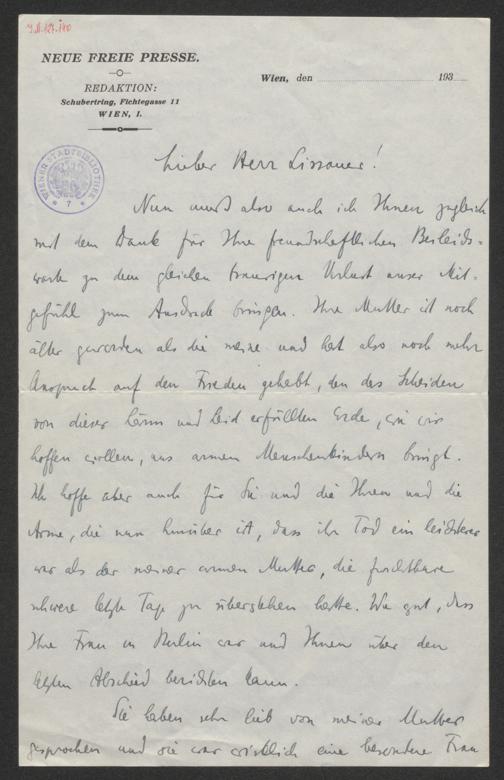 NEUE FREIE PRESSE.
REDAKTION:
Schubertring, Fichtegasse 11
WIEN, I.
Wien, den 193
WIENER STADTBIBLIOTHEK
7
Lieber Herr Lissauer!
Nun muß also auch ich Ihnen zugleich
mit dem Dank für Ihre freundschaftlichen Beileids-
worte zu dem gleichen traurigen Verlust unser Mit-
gefühl zum Ausdruck bringen. Ihre Mutter ist noch
älter geworden als die meine und hat also noch mehr
Anspruch auf den Frieden gehabt, den das Scheiden
von dieser Lärm und Leid erfüllten Erde, wie wir
hoffen wollen, uns armen Menschenkindern bringt.
Ich hoffe aber auch für Sie und die Ihren und die
Arme, die nun hinüber ist, dass ihr Tod ein leichterer
war als der meiner armen Mutter, die furchtbare
schwere letzte Tage zu überstehen hatte. Wie gut, dass
Ihre Frau in Berlin war und Ihnen über den
letzten Abschied berichten kann.
Sie haben sehr lieb von meiner Mutter
gesprochen und sie war wirklich eine besondere Frau